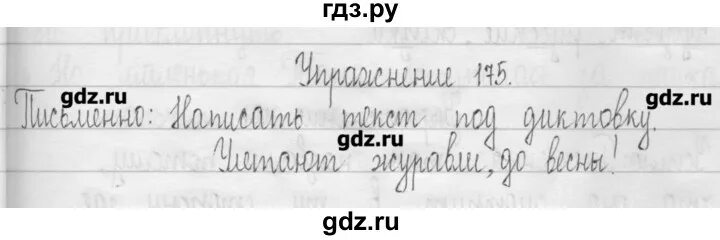 гдз.ру
Упражнение 175.
gdz.ru gdz.ru
Письменно: Написать текст под диктовку.
gdz.ru
Улетают журавли, до весны!
gdz.ru